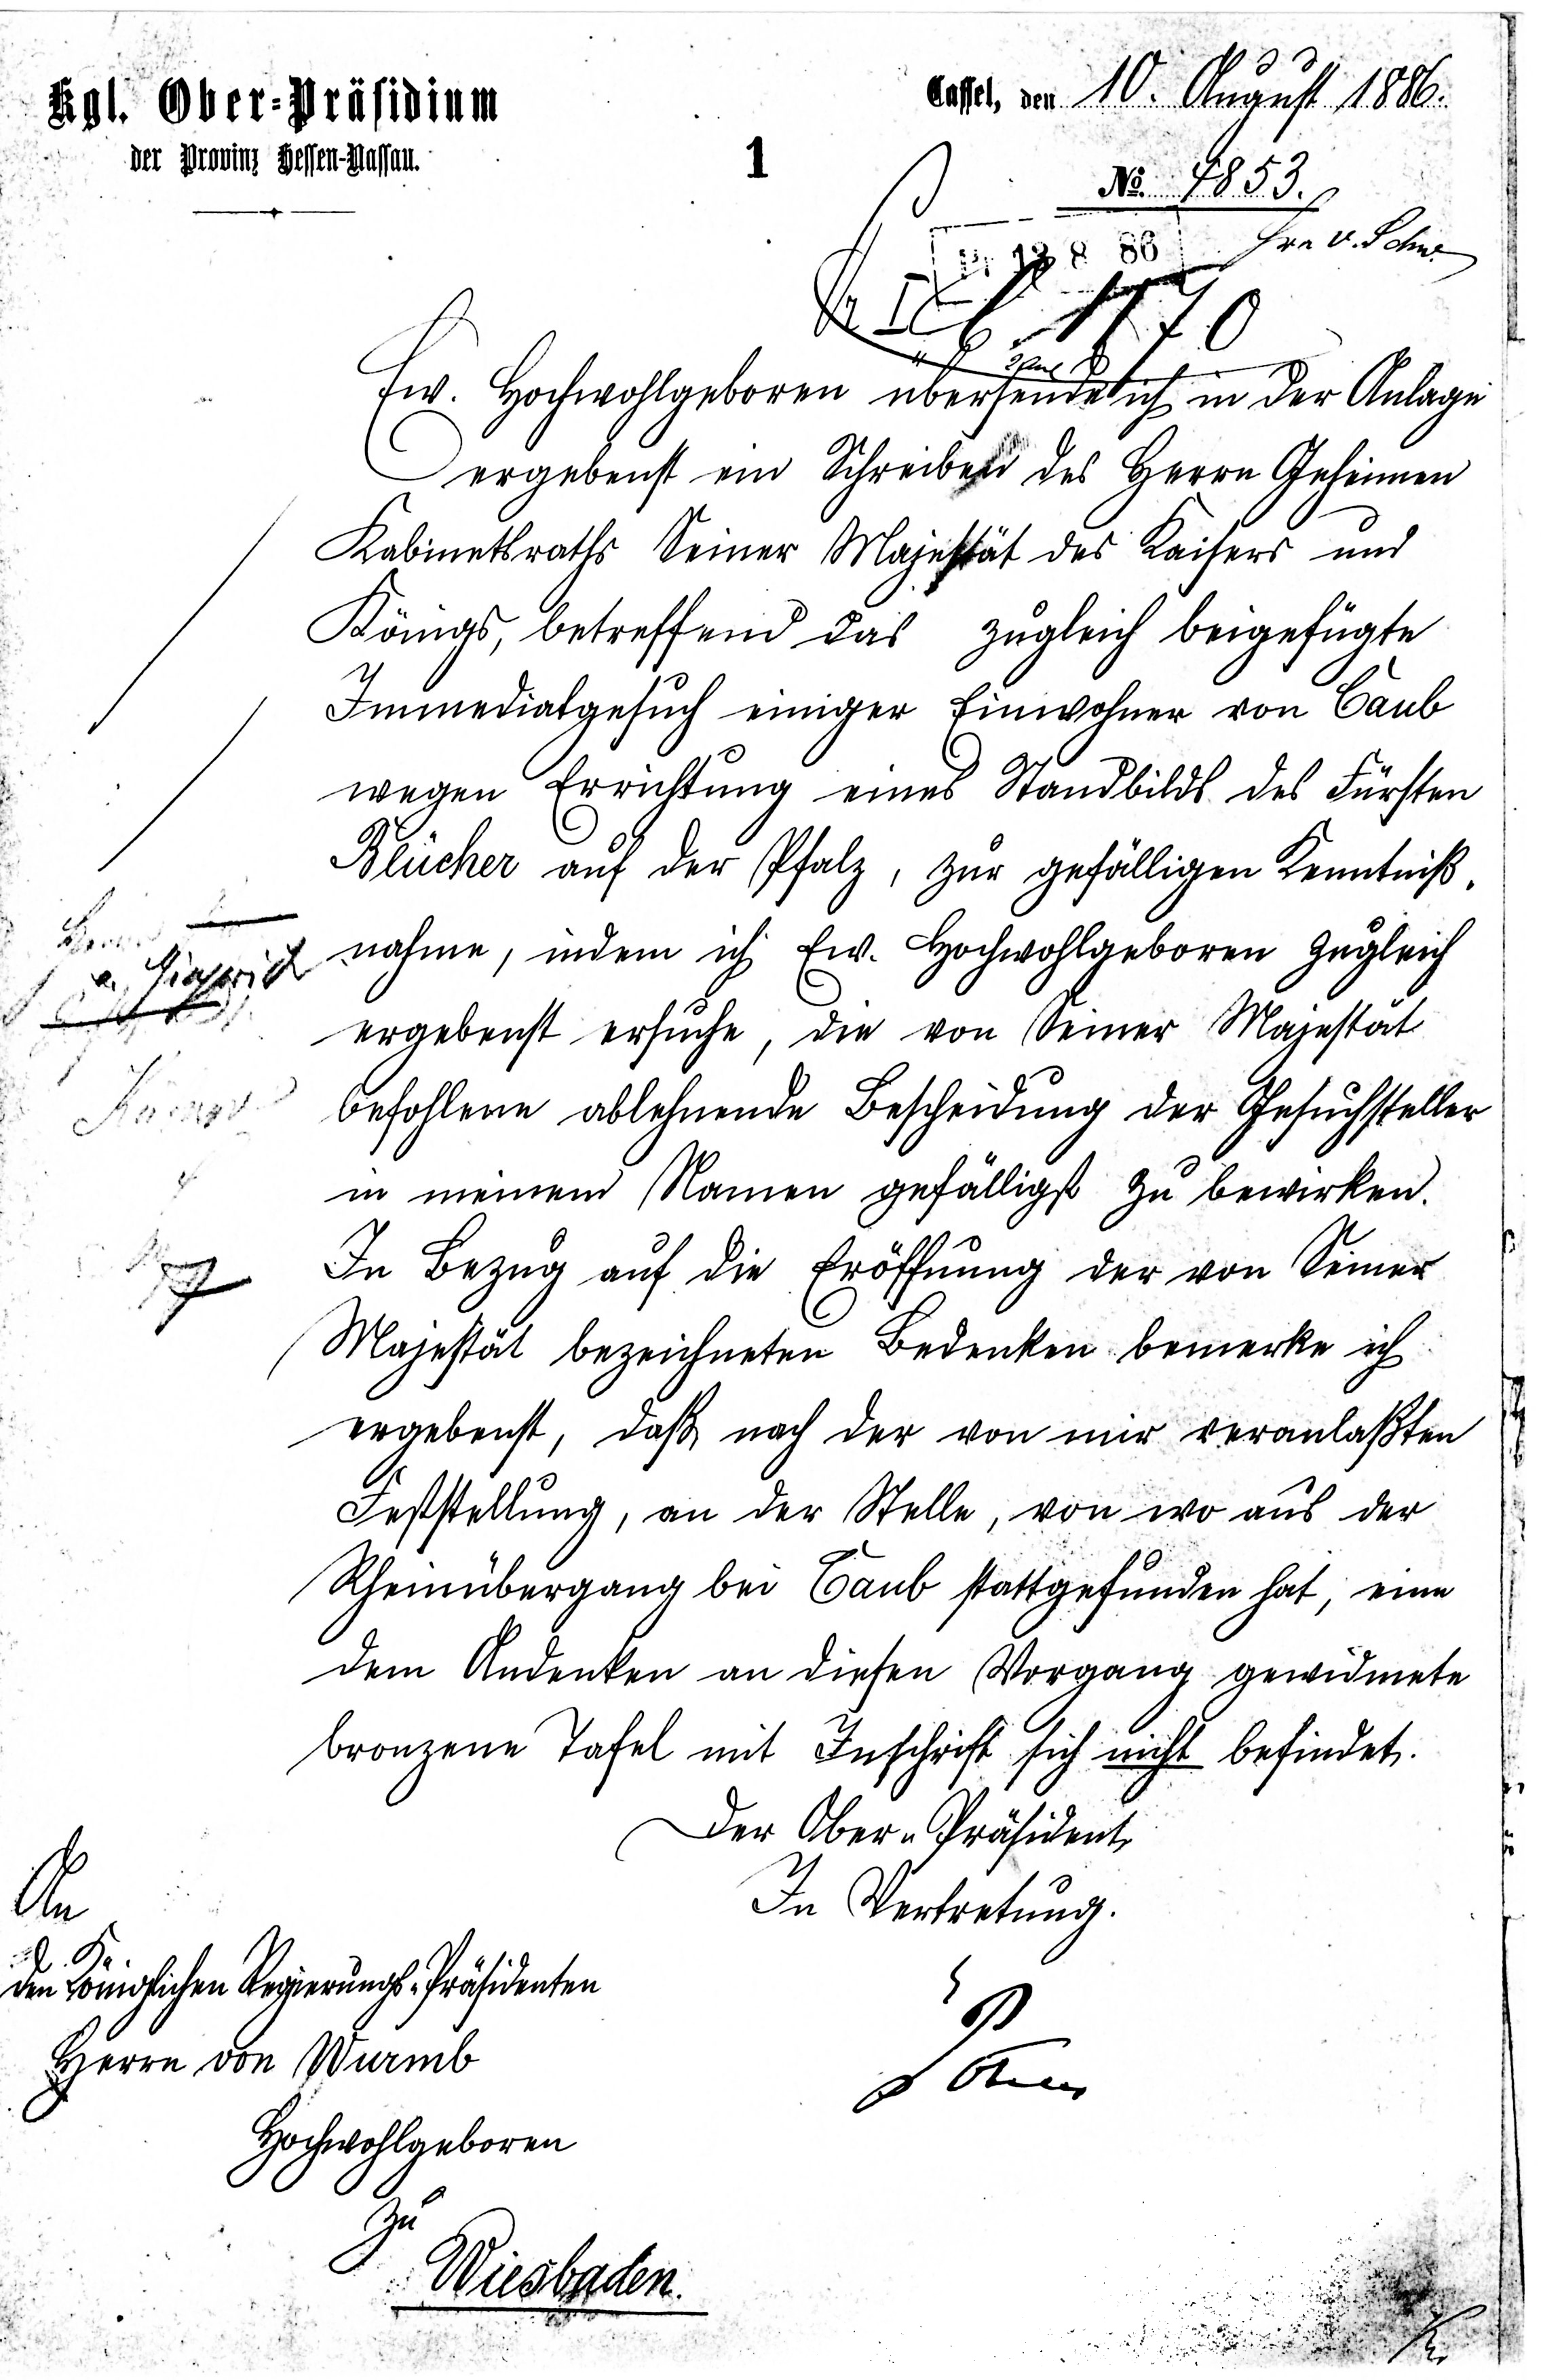 Kgl. Ober-Präsidium
der Provinz Hessen-Nassau.
Cassel, den 10. August 1886.
1
No. 4853.
Hrn v. Schw.
Pr 13 8 86
1770
Ew. Hochwohlgeboren übersende ich in der Anlage
ergebenst ein Schreiben des Herrn Geheimen
Kabinetsraths Seiner Majestät des Kaisers und
Königs, betreffend das zugleich beigefügte
Immediatgesuch einiger Einwohner von Caub
wegen Errichtung eines Standbilds des Fürsten
Blücher auf der Pfalz, zur gefälligen Kenntniß-
nahme, indem ich Ew. Hochwohlgeboren zugleich
ergebenst ersuche, die von Seiner Majestät
befohlene ablehnende Bescheidung der Gesuchsteller
in meinem Namen gefälligst zu bewirken.
In Bezug auf die Eröffnung der von Seiner
Majestät bezeichneten Bedenken bemerke ich
ergebenst, daß nach der von mir veranlaßten
Feststellung, an der Stelle, von wo aus der
Rheinübergang bei Caub stattgefunden hat, eine
dem Andenken an diesen Vorgang gewidmete
bronzene Tafel mit Inschrift sich nicht befindet.
Der Ober-Präsident,
In Vertretung.
An
den Königlichen Regierungs-Präsidenten
Herrn von Wurmb
Hochwohlgeboren
zu
Wiesbaden.